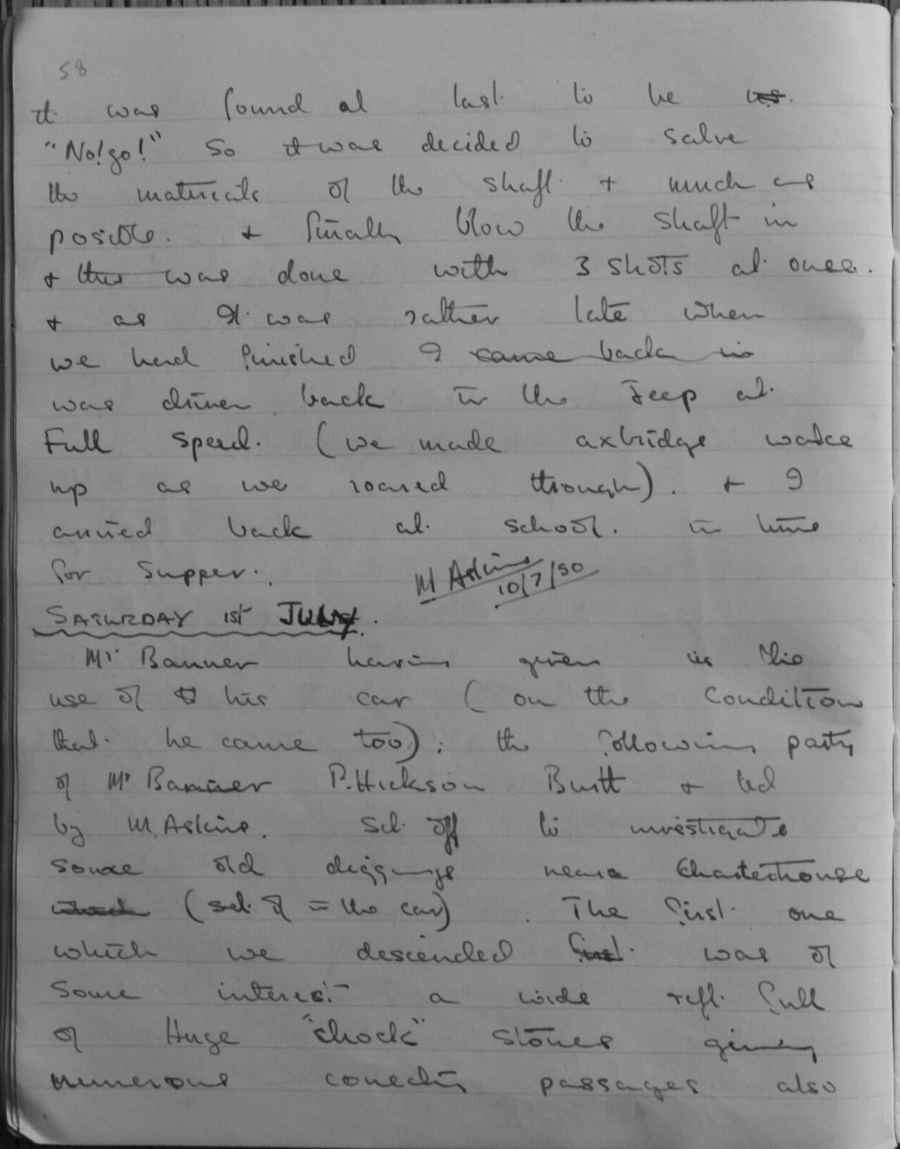 58
it was found at last to be
"No! go!" So it was decided to salve
the materials of the shaft + much as
posible. + finally blow the shaft in
+ this was done with 3 shots at once.
+ as It was rather late when
we had finished I came back in
was driven back in the Jeep at
Full speed. (we made axbridge wake
up as we roared through). + I
arrived back at school. in time
for supper.
M Askins 10/7/50
SATURDAY 1st JULY.
Mr Banner having given us the
use of his car (on the condition
that he came too); the following party
of Mr Banner P. Hickson Butt + led
by M. Askins. Set off to investigate
some old diggings near Charterhouse
(set off = the car). The first one
which we descended first was of
some interest a wide rift full
of Huge "chock" stones giving
numerous conecting passages also